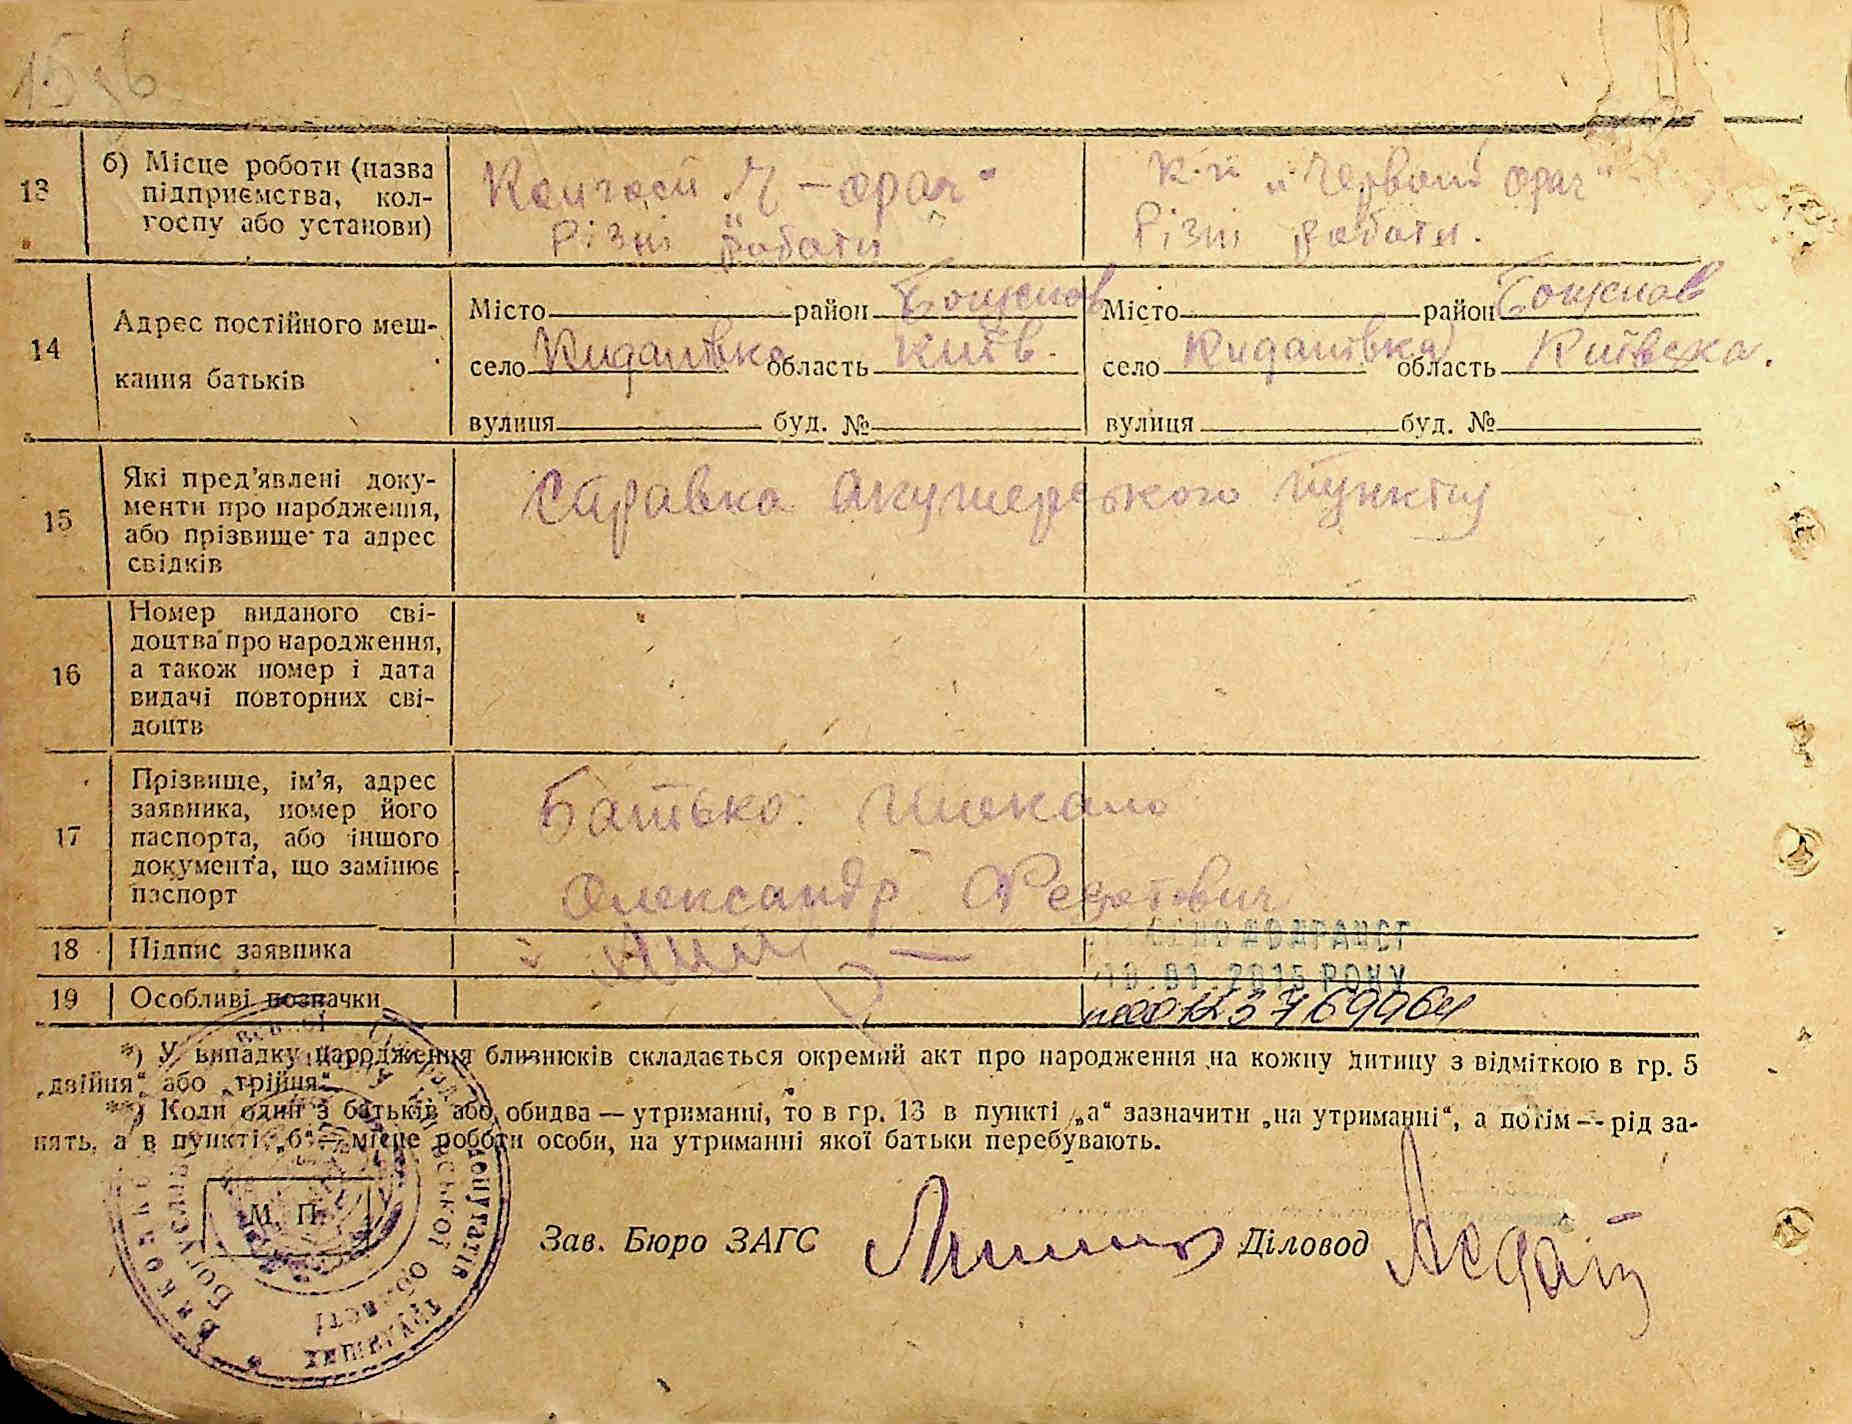 13
б) Місце роботи (назва
підприємства, кол-
госпу або установи)
Колгосп „Ч-орач“
Різні роботи
К-п „Червоний орач“
Різні роботи.
14
Адрес постійного меш-
кання батьків
Місто район
село Киданівка область Київ.
вулиця буд. №
Місто район
село Киданівка область Київська.
вулиця буд. №
15
Які пред’явлені доку-
менти про народження,
або прізвище та адрес
свідків
Справка Акушерського пункту
16
Номер виданого сві-
доцтва про народження,
а також номер і дата
видачі повторних сві-
доцтв
17
Прізвище, ім’я, адрес
заявника, номер його
паспорта, або іншого
документа, що замінює
паспорт
Батько:
Олександр
18
Підпис заявника
10.01.2015 РОКУ
19
Особливі позначки
00123769964
*) У випадку народження близнюків складається окремий акт про народження на кожну дитину з відміткою в гр. 5
„двійня“ або „трійня“.
**) Коли один з батьків або обидва — утриманні, то в гр. 13 в пункті „а“ зазначити „на утриманні“, а потім — рід за-
нять, а в пункті „б“ — місце роботи особи, на утриманні якої батьки перебувають.
М. П.
Зав. Бюро ЗАГС
Діловод